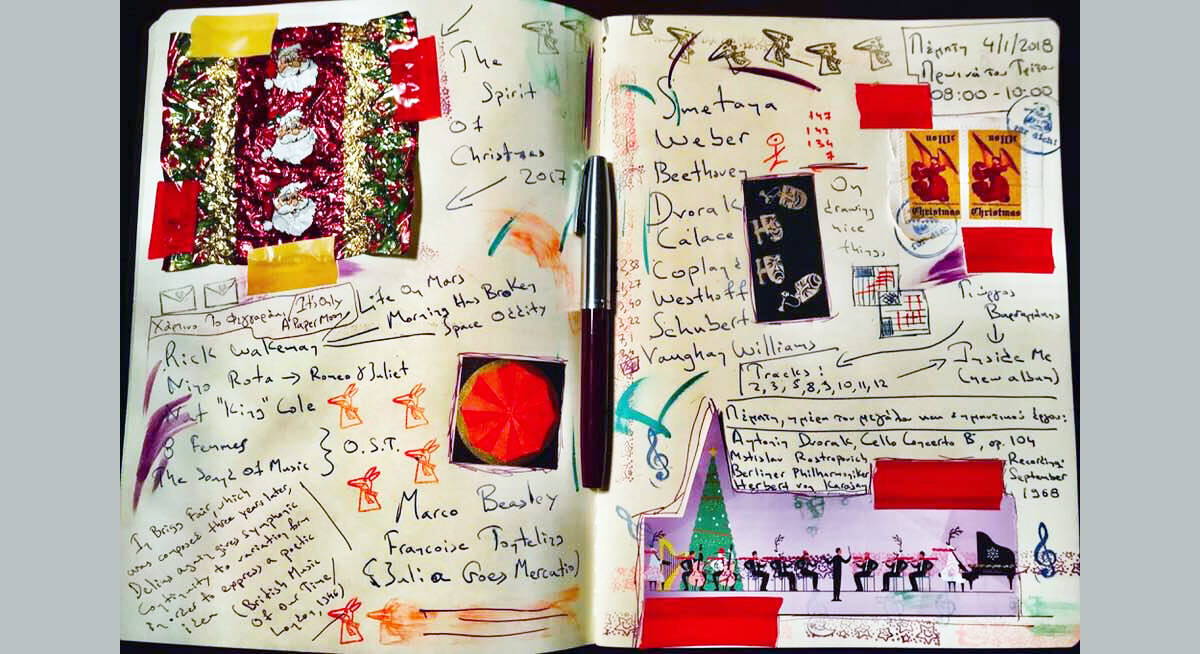 The
Spirit
Of
Christmas
2017
Χάρτινο Το Φεγγαράκι
It's Only
A Paper Moon
Life On Mars
Morning Has Broken
Space Oddity
Rick Wakeman
Nino Rota → Romeo & Juliet
Nat "King" Cole
8 Femmes
The Song Of Music } O.S.T.
Marco Beasley
Francoise
(Julia Goes Mercatio)
In Brigg Fair, which
was composed three years later,
Delius again gives symphonic
continuity to variation form
in order to express a poetic
idea
(British Music
Of Our Time
London, 1946)
Πέμπτη 4/1/2018
Πρωινά του Τρίτου
08:00 - 10:00
Smetana
Weber
Beethoven
Dvorak
Calace
Copland
Westhoff
Schubert
Vaughan Williams
147
142
134
7
On
drawing
nice
things
US 10c
Christmas
US 10c
Christmas
Γιώργος
Inside Me
(new album)
Tracks:
2, 3, 5, 8, 9, 10, 11, 12
Πέμπτη, ημέρα του μεγάλου και σημαντικού έργου:
Antonin Dvorak, Cello Concerto B, op. 104
Mstislav Rostropovich
Berliner Philharmoniker
Herbert von Karajan
Recording:
September
1968